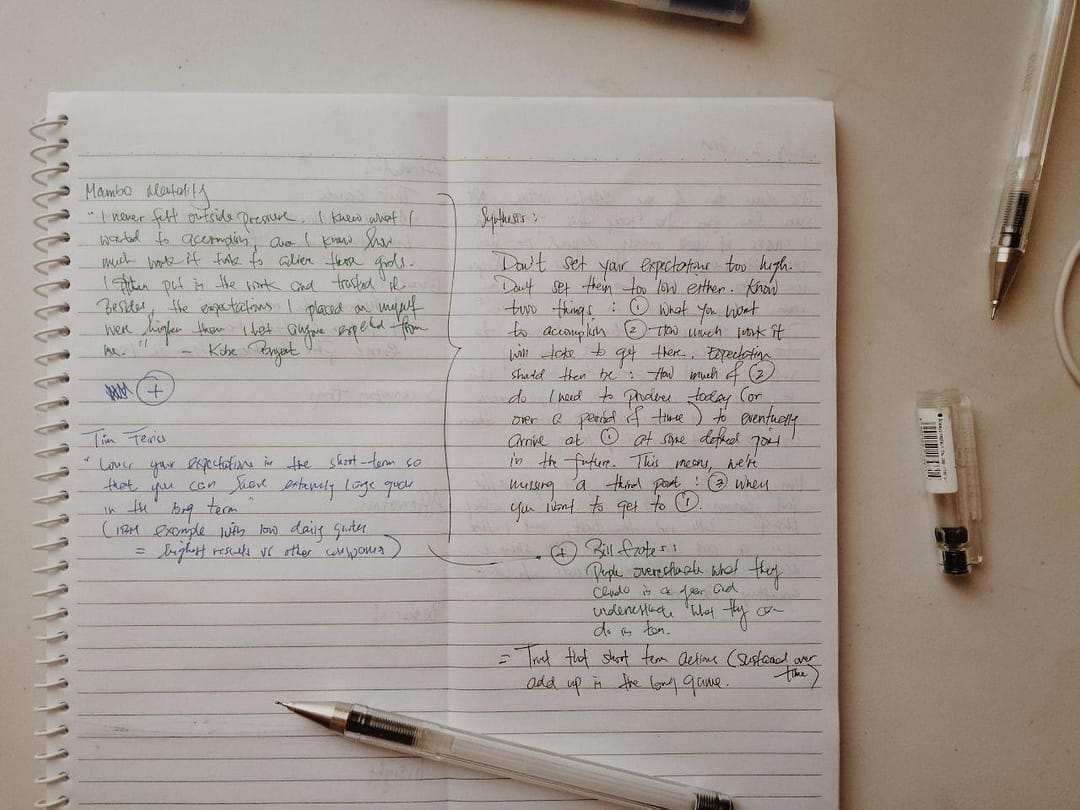 Mambo Mentality
"I never felt outside pressure. I knew what I
wanted to accomplish, and I knew how
much work it took to achieve those goals.
I then put in the work and trusted it.
Besides, the expectations I placed on myself
were higher than what anyone expected from
me." - Kobe Bryant
+
Tim Ferriss
"Lower your expectations in the short-term so
that you can have extremely large goals
in the long term"
(IBM example with low daily quotas
= highest results vs other companies)
Synthesis:
Don't set your expectations too high.
Don't set them too low either. Know
two things: ① what you want
to accomplish ② How much work it
will take to get there. Expectation
should then be: How much of ②
do I need to produce today (or
over a period of time) to eventually
arrive at ① at some defined point
in the future. This means, we're
missing a third point: ③ when
you want to get to ①.
+ Bill Gates:
People overestimate what they
can do in a year and
underestimate what they can
do in ten.
= Trust that short term actions (sustained over
time)
add up in the long game.